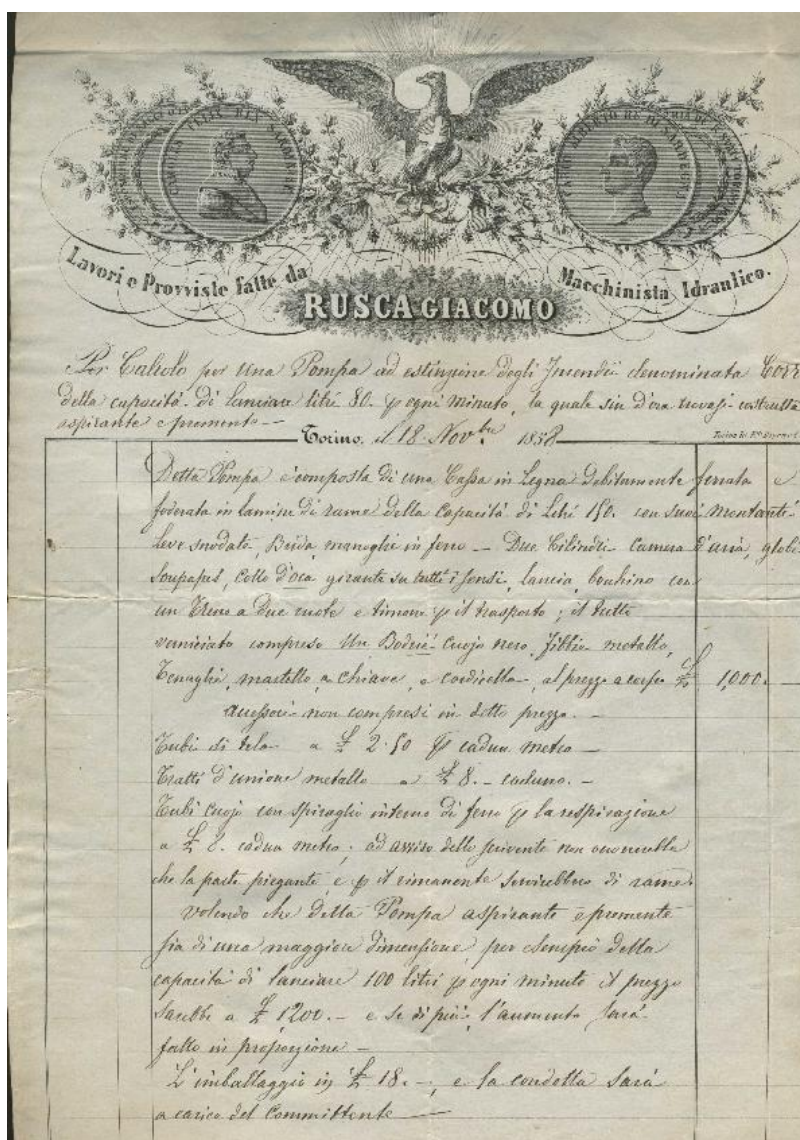 CAROLUS FELIX REX SARDINIAE
CARLO ALBERTO RE DI SARDEGNA
Lavori e Provviste fatte da
Macchinista Idraulico.
RUSCA GIACOMO
Per Calcolo per Una Pompa ad estinzione degli Incendii denominata
della capacità di lanciare litri 80. p ogni minuto, la quale sin d'ora trovasi costrutta
aspirante e premente —
Torino, il 18 Nov.bre 1858
Detta Pompa è composta di una Cassa in Legna Debitamente ferrata e
foderata in lamine di rame della Capacità di Litri 150. con suoi Montanti
leve snodate, manoglie in ferro — Due Cilindri Camera d'aria, globi
Soupapes, Collo d'oca girante su tutti i sensi, lancia, bochino con
un Treno a Due ruote e timone p il trasporto; il tutto
verniciato compreso Un Cuojo nero, fibbie metallo,
Tenaglie, martello, a chiave, e cordicella, al prezzo £ 1,000. —
accessori non compresi in detto prezzo. —
Tubi di tela a £ 2.50 p cadun metro —
Tratti d'unione metallo a £ 8. — caduno. —
Tubi Cuojo con spiraglio interno di ferro p la respirazione
a £ 8. cadun metro; ad avviso dello scrivente non
che la parte piegante, e p il rimanente servirebbero di rame.
Volendo che Detta Pompa aspirante e premente
sia di una maggior Dimensione, per esempio della
capacità di lanciare 100 litri p ogni minuto il prezzo
sarebbe a £ 1200. — e se di più, l'aumento sarà
fatto in proporzione —
L'imballaggio in £ 18. —, e la condotta Sarà
a carico del Committente —